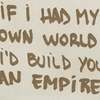 IF I HAD MY
OWN WORLD
I'D BUILD YOU
AN EMPIRE